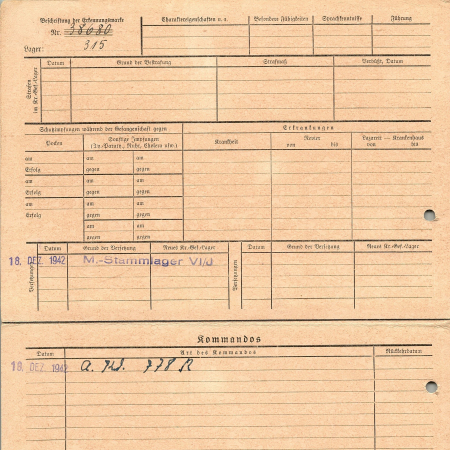 Beschriftung der Erkennungsmarke
Nr. 38680
315
Lager:
Charaktereigenschaften u. a.
Besondere Fähigkeiten
Sprachkenntnisse
Führung
Strafen im Kr.-Gef.-Lager
Datum
Grund der Bestrafung
Strafmaß
Verbüßt, Datum
Schutzimpfungen während der Gefangenschaft gegen
Erkrankungen
Pocken
Sonstige Impfungen
(Ty.-Paraty., Ruhr, Cholera usw.)
Krankheit
Revier
von bis
Lazarett – Krankenhaus
von bis
am am am
Erfolg gegen gegen
am am am
Erfolg gegen gegen
am am am
Erfolg gegen gegen
am am
gegen gegen
Versetzungen
Datum
Grund der Versetzung
Neues Kr.-Gef.-Lager
18. DEZ. 1942 M.-Stammlager VI/J
Versetzungen
Datum
Grund der Versetzung
Neues Kr.-Gef.-Lager
Kommandos
Datum
Art des Kommandos
Rückkehrdatum
18. DEZ. 1942 A. Kd. 778 R